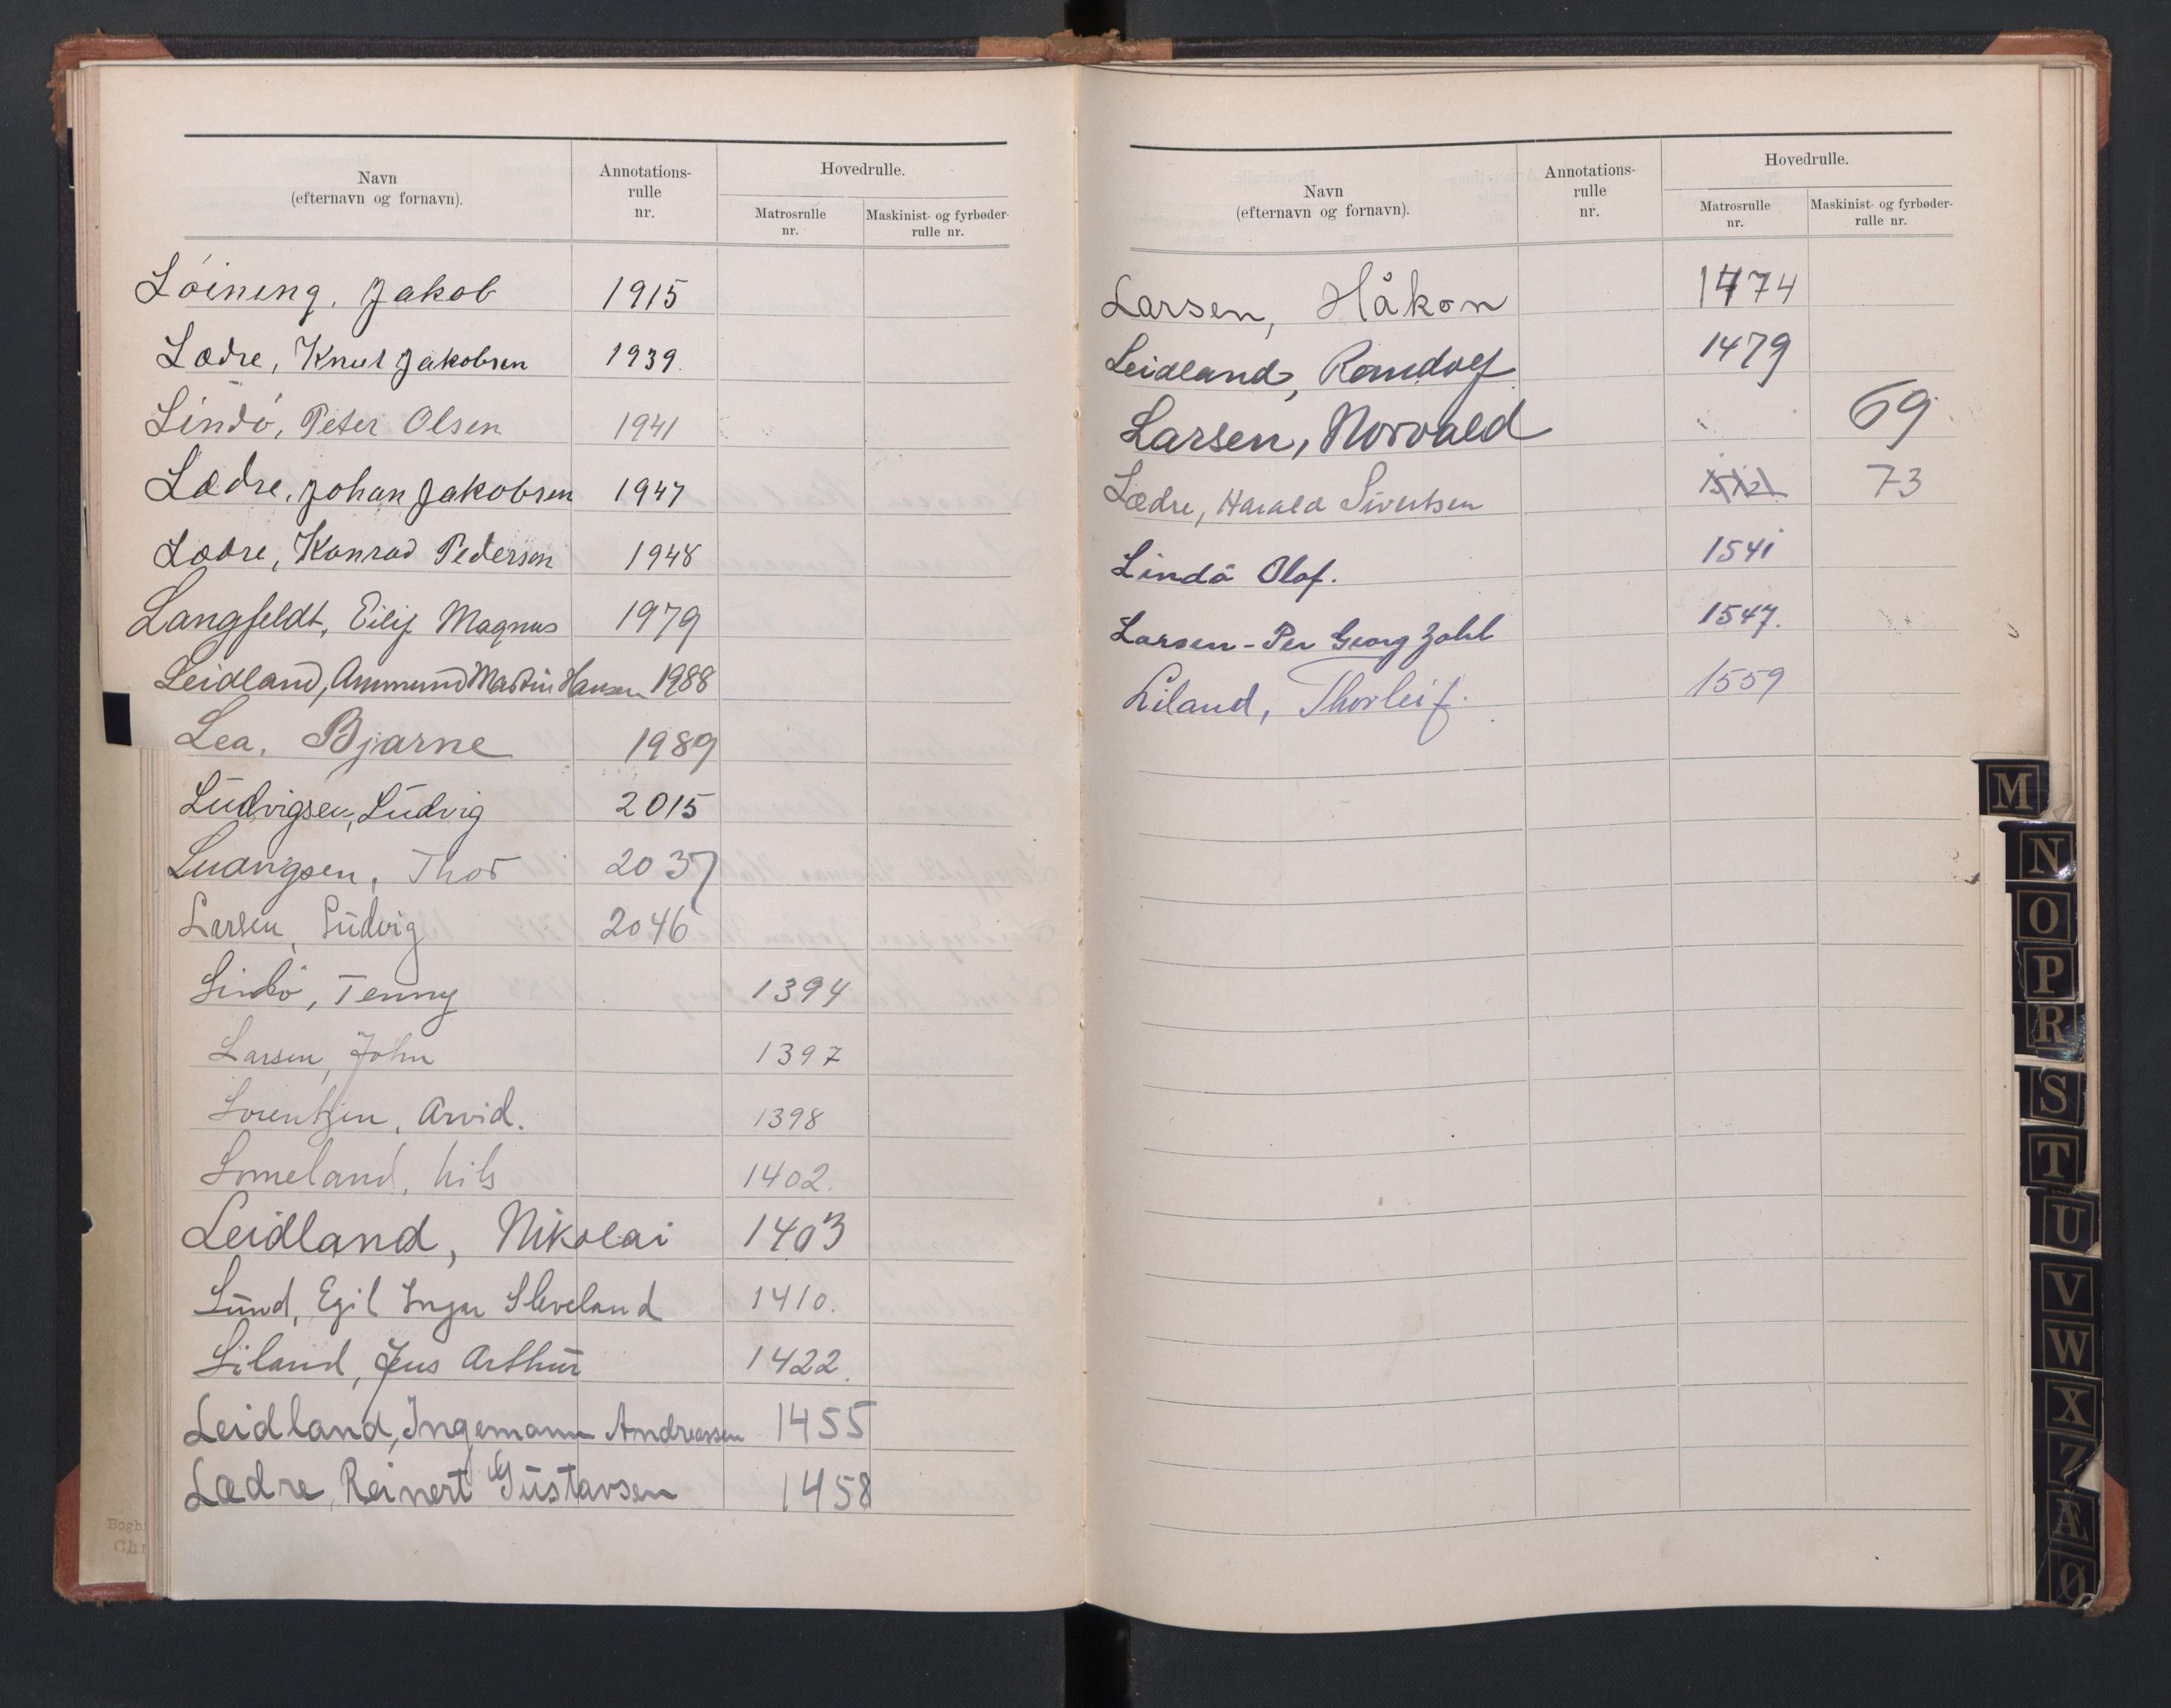 Navn
(efternavn og fornavn).
Annotations-
rulle
nr.
Hovedrulle.
Matrosrulle
nr.
Maskinist- og fyrbøder-
rulle nr.
Løining, Jakob 1915
Lædre, Knut Jakobsen 1939.
Lindø, Peter Olsen 1941
Lædre, Johan Jakobsen 1947
Lædre, Konrad Pedersen 1948
Langfeldt, Eilif Magnus 1979
Leidland, Ammund Martin Hansen 1988
Lea, Bjarne 1989
Ludvigsen, Ludvig 2015
Ludvigsen, Thor 2037
Larsen, Ludvig 2046
Lindø, Tenny 1394
Larsen, John 1397
Lorentzen, Arvid. 1398
Lomeland, Nils 1402.
Leidland, Nikolai 1403
Lund, Egil Ingar Sleveland 1410.
Liland, Jens Arthur 1422.
Leidland, Ingemann Andreassen 1455
Lædre, Reinert Gustavsen 1458
Navn
(efternavn og fornavn).
Annotations-
rulle
nr.
Hovedrulle.
Matrosrulle
nr.
Maskinist- og fyrbøder-
rulle nr.
Larsen, Håkon 1474
Leidland, Romdolf 1479
Larsen, Norvald 69
Lædre, Harald Sivertsen 73
Lindø Olaf. 1541
Larsen - Per Georg Zahl 1547.
Liland, Thorleif. 1559
M
N
O
P
R
S
T
U
V
W
X
Z
Æ
Ø